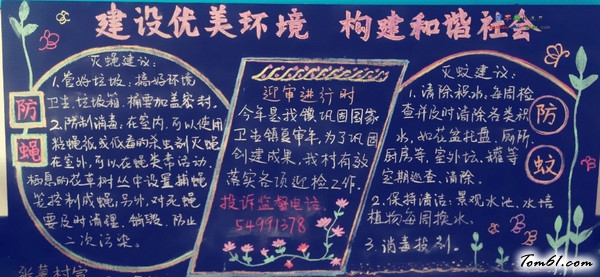 建设优美环境 构建和谐社会
灭蝇建议:
1.管好垃圾:搞好环境
卫生,垃圾箱、桶要加盖密封.
2.防制消毒:在室内,可以使用
粘蝇纸或低毒的杀虫剂灭蝇
在室外,可以在蝇类常活动,
栖息的花草树丛中设置捕蝇
笼控制成蝇.另外,对灭蝇
要及时清理、销毁、防止
二次污染.
防
蝇
迎审进行时
今年是我镇巩固国家
卫生镇复审年,为了巩固
创建成果,我村有效
落实各项迎检工作.
投诉监督电话
54991378
灭蚊建议:
1.清除积水:每周检
查并及时清除各类积
水,如花盆托盘、厕所、
厨房等,室外坑、罐等
定期巡查、清除.
2.保持清洁:景观水池、水培
植物每周换水.
3.消毒投剂.
防
蚊
Tom61.com